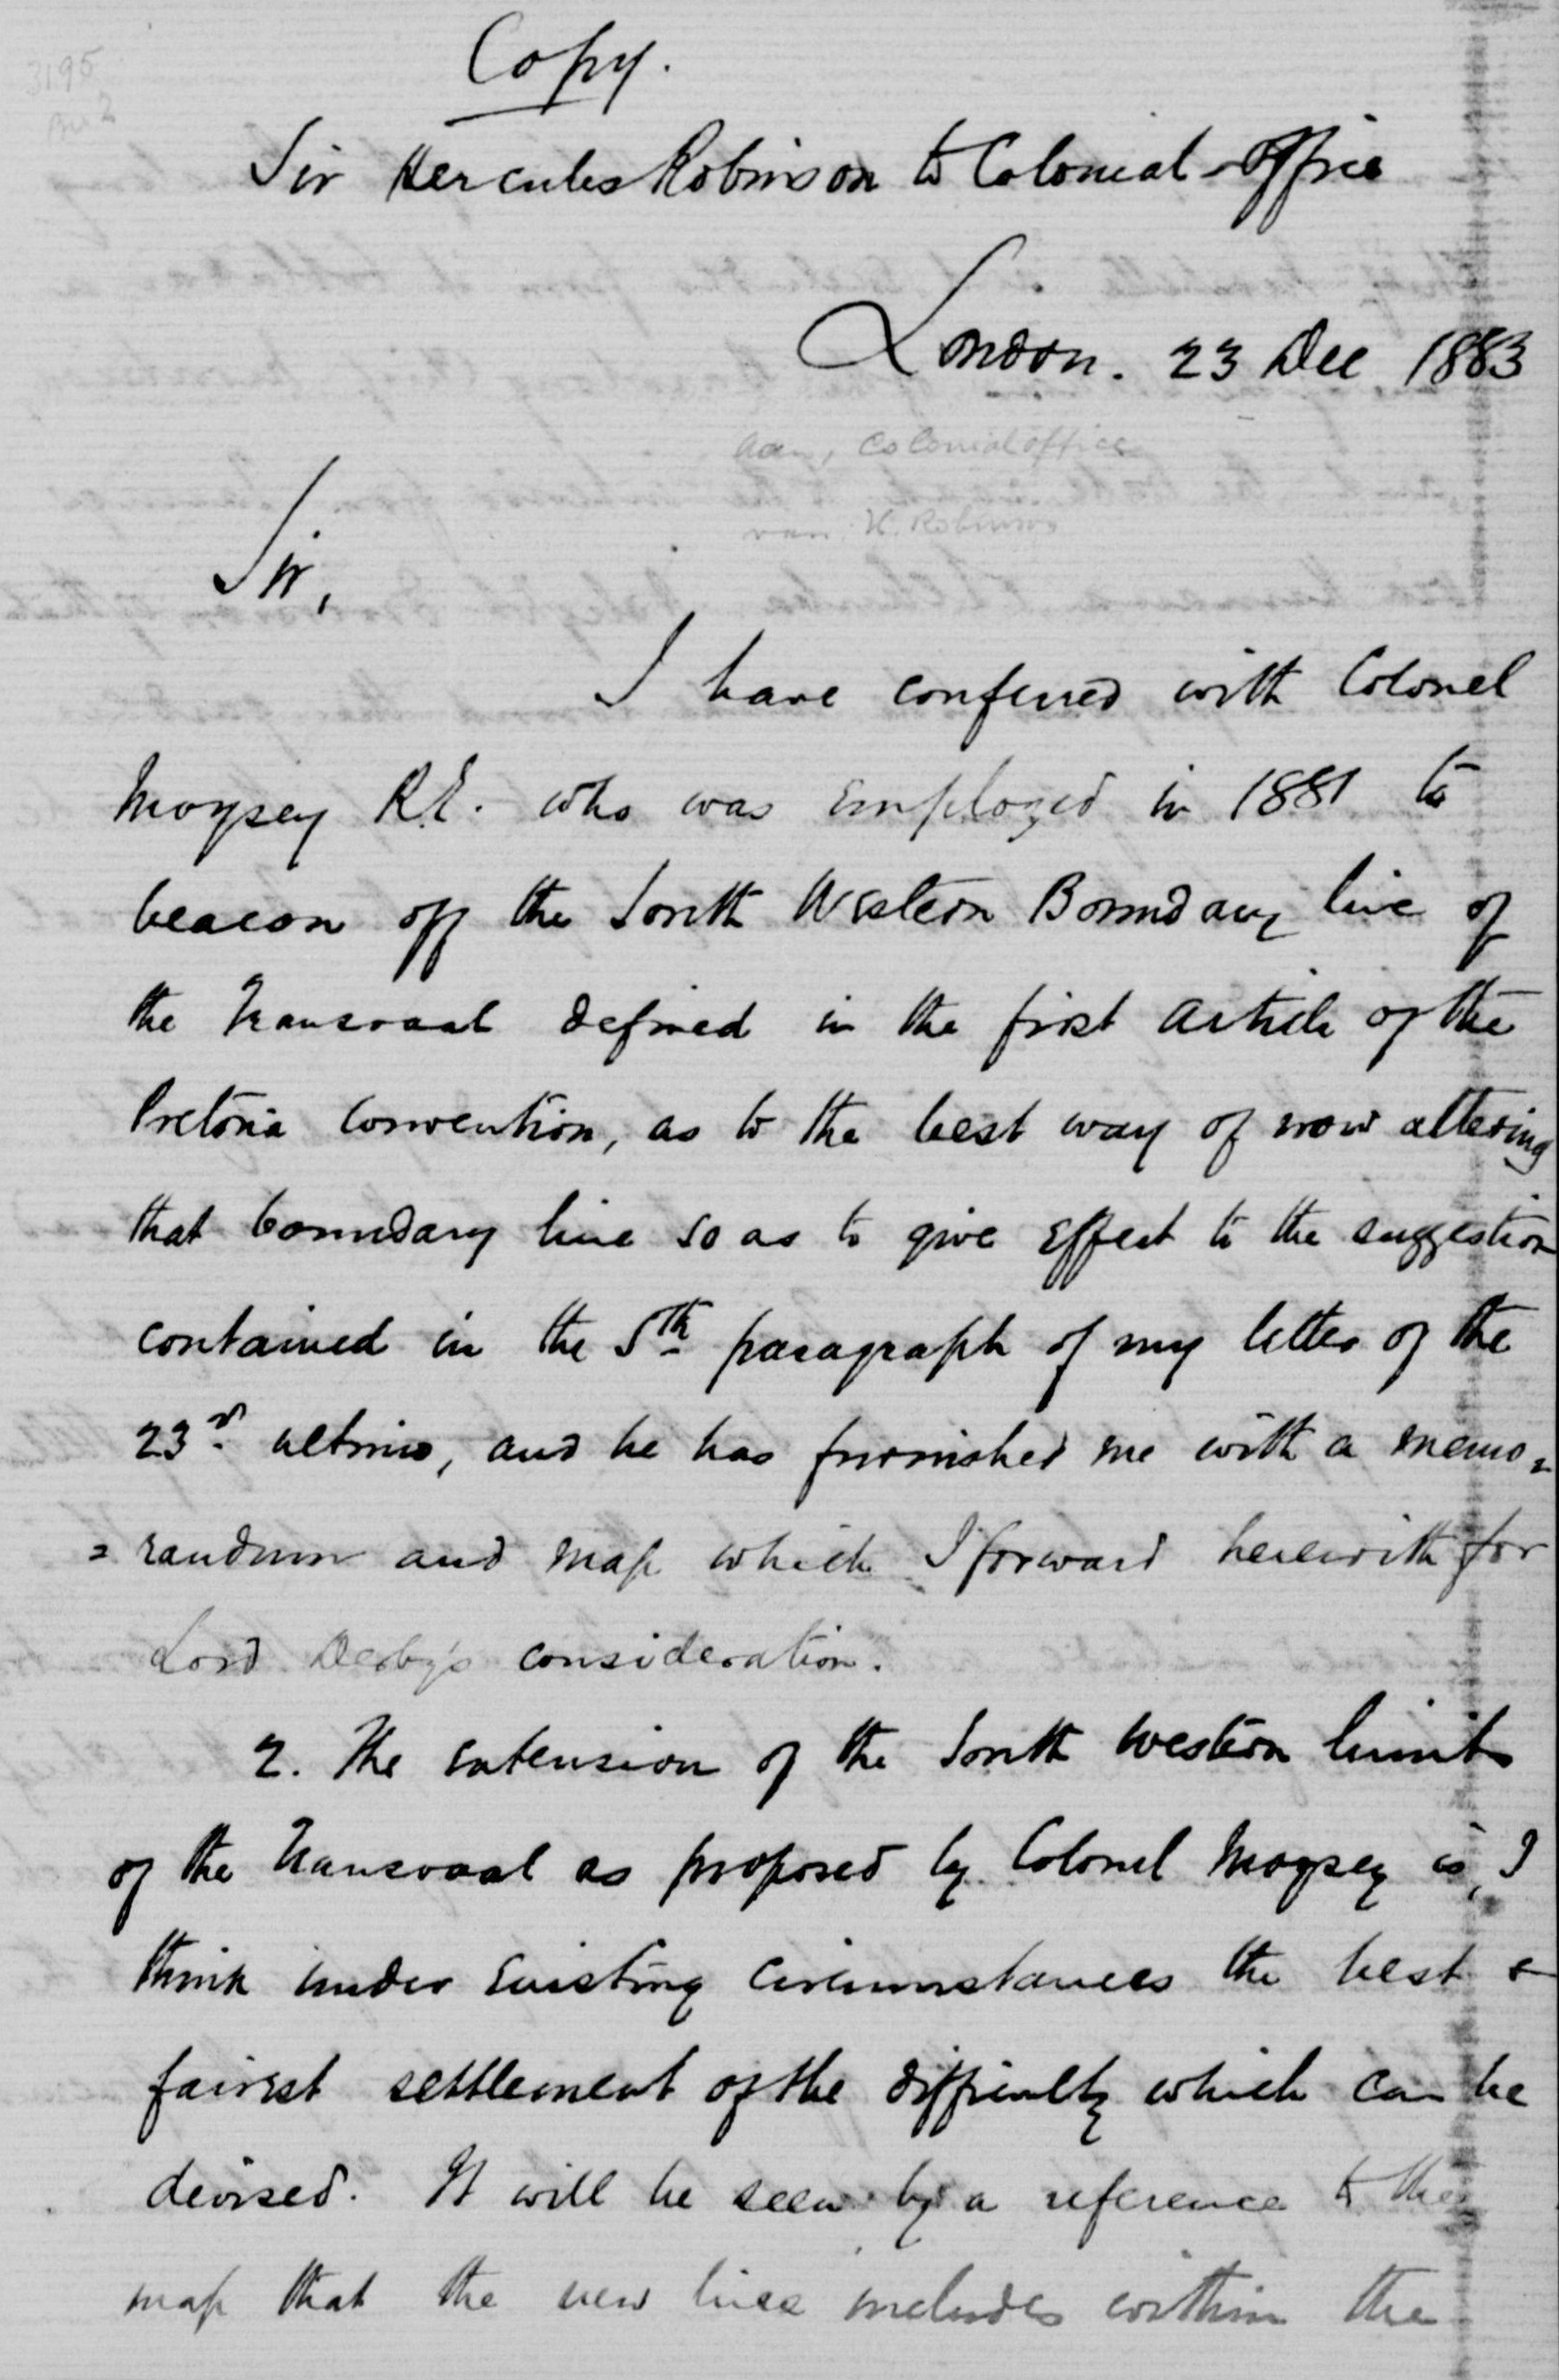 3195
Copy.
Sir Hercules Robinson to Colonial Office
London. 23 Dec 1883
aan, Colonial office
van H. Robinson
Sir,
I have conferred with Colonel
Moysey R.E. who was employed in 1881 to
beacon off the South Western Boundary line of
the Transvaal defined in the first article of the
Pretoria Convention, as to the best way of now altering
that boundary line so as to give effect to the suggestion
contained in the 5th paragraph of my letter of the
23rd ultimo, and he has furnished me with a memo=
=randum and map which I forward herewith for
Lord Derby's consideration.
2. The extension of the South Western limits
of the Transvaal as proposed by Colonel Moysey is, I
think under existing circumstances the best &
fairest settlement of the difficulty which can be
devised. It will be seen by a reference to the
map that the new line includes within the